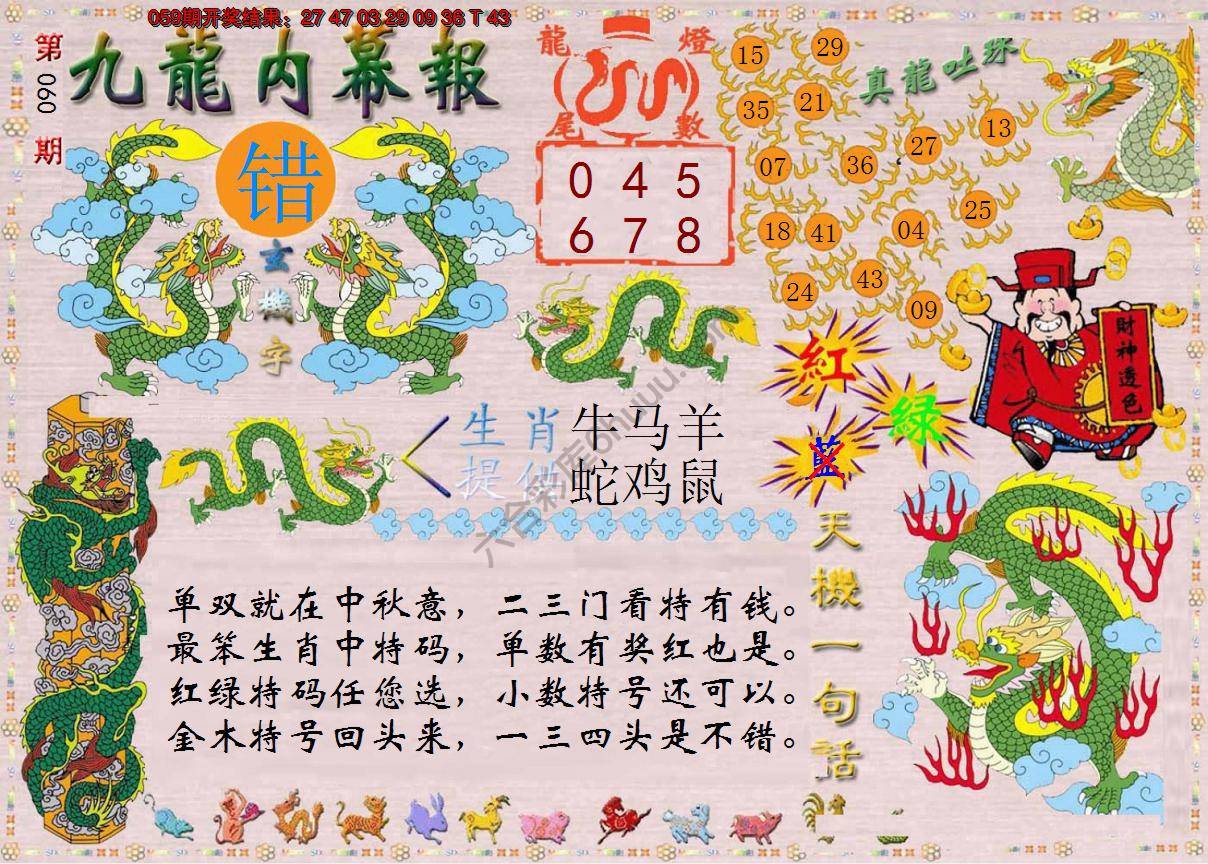 059期开奖结果：27 47 03 29 09 36 T 43
第
060
期
九龍内幕報
错
玄
機
字
龍 燈
尾 數
0 4 5
6 7 8
真龍吐珠
15 29
35 21
27 13
07 36
25
18 41 04
24 43
09
財神透色
紅
綠
藍
生肖 牛马羊
提供 蛇鸡鼠
六合彩库6huuu.com
单双就在中秋意，二三门看特有钱。
最笨生肖中特码，单数有奖红也是。
红绿特码任您选，小数特号还可以。
金木特号回头来，一三四头是不错。
天機一句話